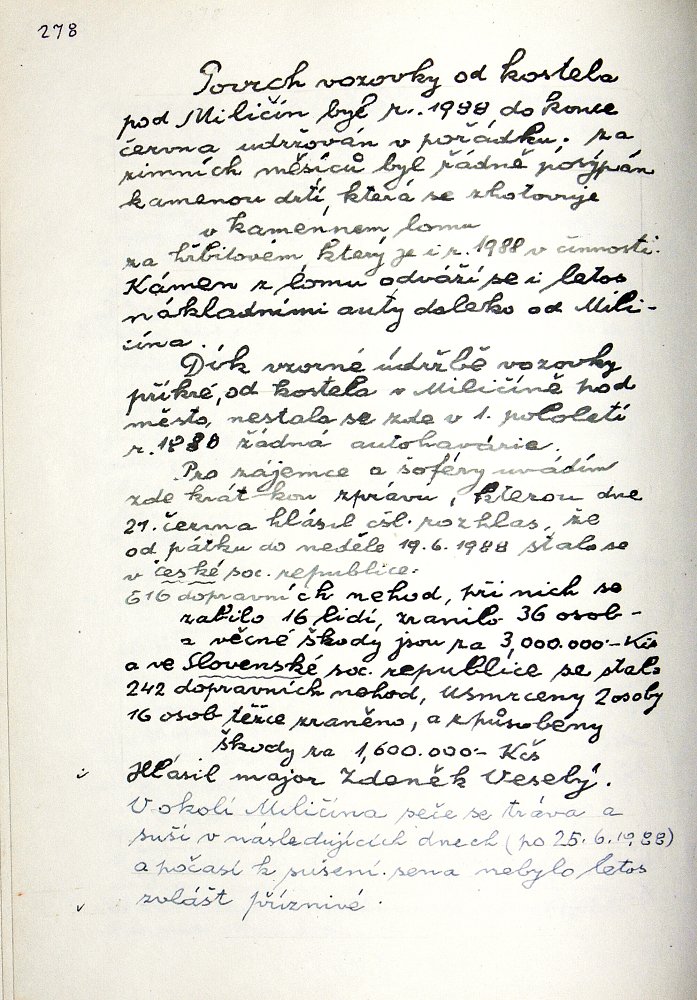 278
Povrch vozovky od kostela
pod Miličín byl r. 1988 do konce
června udržován v pořádku. za
zimních měsíců byl řádně posýpán
kamenou drtí, která se zhotovuje
v kamenném lomu
za hřbitovém který je i r. 1988 v činnosti.
Kámen z lomu odváží se i letos
nákladními auty daleko od Mili-
čína.
Dík vzorné údržbě vozovky
příkré, od kostela v Miličíně pod
město, nestala se zde v 1. pololetí
r. 1988 žádná autohavárie.
Pro zájemce a šoféry uvádím
zde krátkou zprávu, kterou dne
21. června hlásil čsl. rozhlas, že
od pátku do neděle 19.6.1988 stalo se
v české soc. republice.
616 dopravních nehod, při nich se
zabilo 16 lidí, zranilo 36 osob -
a věcné škody jsou za 3,000.000- Kčs
a ve Slovenské soc. republice se stalo
242 dopravních nehod, Usmrceny 2 osoby
16 osob těžce zraněno, a způsobeny
škody za 1,600.000- Kčs
Hlásil major Zdeněk Veselý.
V okolí Miličína seče se tráva a
suší v následujících dnech (po 25.6.1988)
a počasí k sušení sena nebylo letos
zvlášt příznivé.